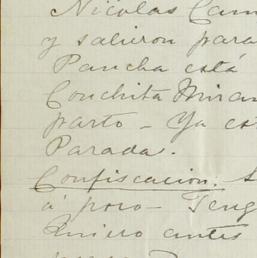 Nicolas Cam
y salieron para
Pancha está
Conchita Miran
parto - Ya es
Parada.
Confiscacion: S
á poro - Teng
antes